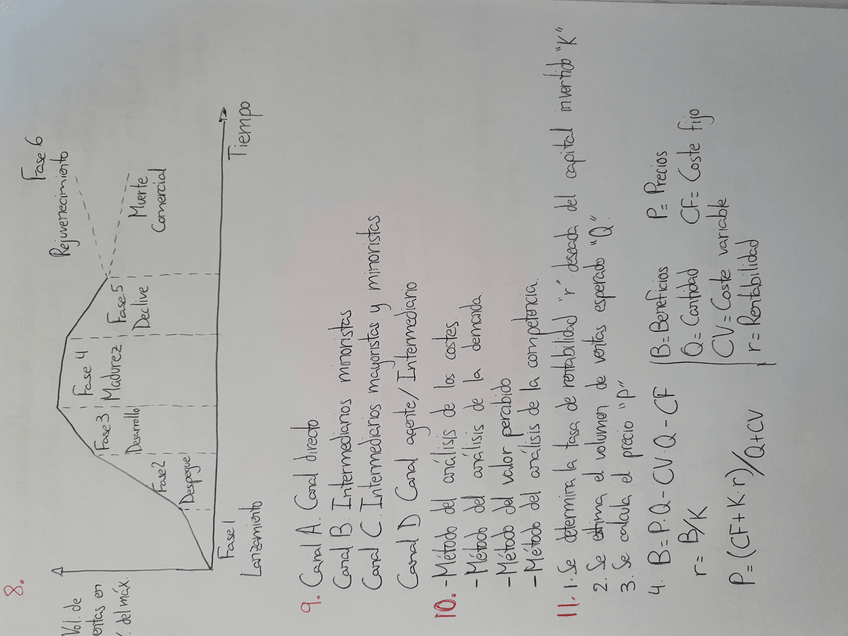 8.
Vol. de
ventas en
% del máx.
Fase 1
Lanzamiento
Fase 2
Despegue
Fase 3
Desarrollo
Fase 4
Madurez
Fase 5
Declive
Fase 6
Rejuvenecimiento
Muerte
Comercial
Tiempo
9. Canal A. Canal directo
Canal B. Intermediarios minoristas
Canal C. Intermediarios mayoristas y minoristas
Canal D. Canal agente/Intermediario
10. -Método del análisis de los costes.
-Método del análisis de la demanda.
-Método del valor percibido
-Método del análisis de la competencia.
11. 1. Se determina la tasa de rentabilidad "r" deseada del capital invertido "K"
2. Se estima el volumen de ventas esperado "Q".
3. Se calcula el precio "p"
4. B=P·Q-CV·Q-CF
r= B/K
P=(CF+K·r)/Q+CV
B=Beneficios P=Precios
Q=Cantidad CF=Coste fijo
CV=Coste variable
r=Rentabilidad